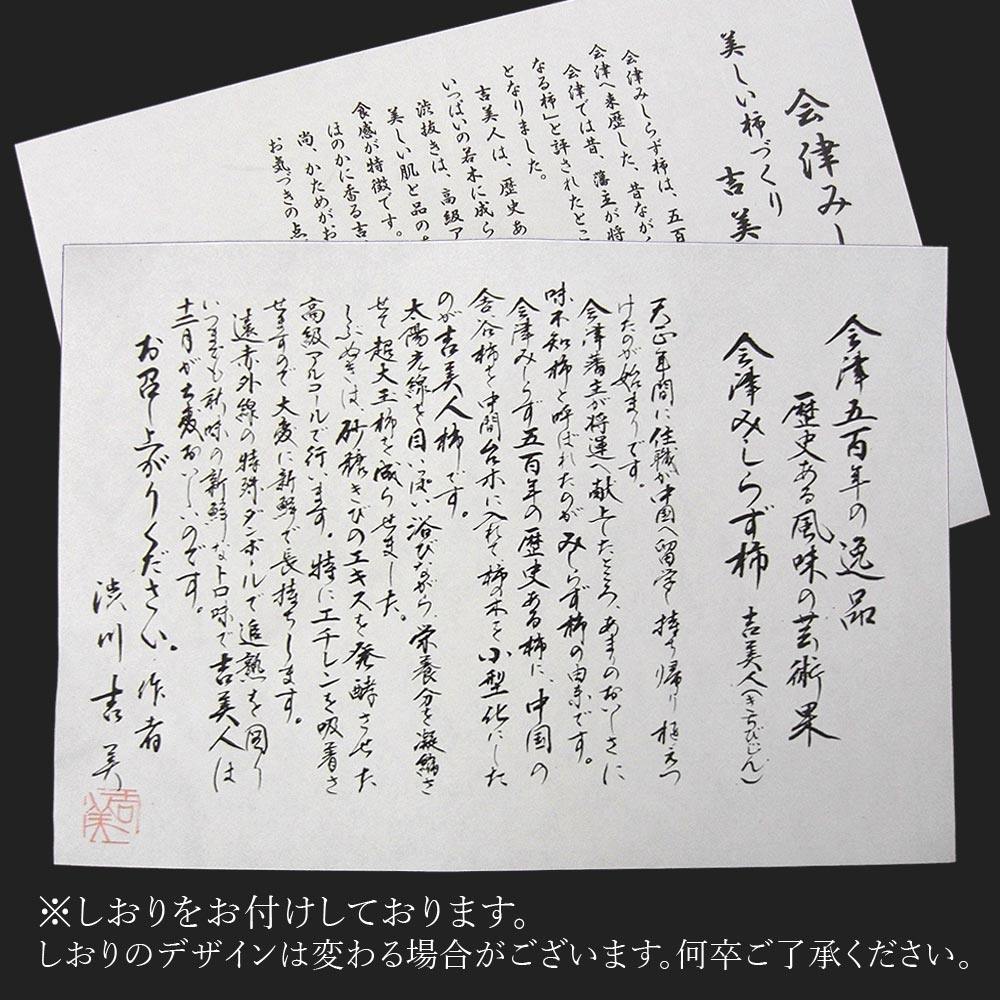 会津みし
美しい柿づくり
吉美
会津みしらず柿は、五百
会津へ来歴した、昔なが
会津では昔、藩主が将
なる柿」と評されたとこ
となりました。
吉美人は、歴史あ
いっぱいの若木に成ら
渋抜きは、高級ア
美しい肌と品の
食感が特徴です。
ほのかに香る吉
尚、かためがお
お気づきの点
会津五百年の逸品
歴史ある風味の芸術果
会津みしらず柿 吉美人(きちびじん)
天正年間に住職が中国へ留学し持ち帰り植えつ
けたのが始まりです。
会津藩主が将軍へ献上したところ、あまりのおいしさに
味不知柿と呼ばれたのがみしらず柿の由来です。
会津みしらず五百年の歴史ある柿に、中国の
舎谷柿を中間台木に入れて柿の木を小型化にした
のが吉美人柿です。
太陽光線を目いっぱい浴びながら、栄養分を凝縮さ
せて超大玉柿を成らせました。
しぶぬきは、砂糖きびのエキスを発酵させた
高級アルコールで行います。特にエチレンを吸着さ
せますので大変に新鮮で長持ちします。
遠赤外線の特殊ダンボールで追熟を図り
いつまでも新味の新鮮なトロ味で吉美人は
十二月が大変おいしいのです。
お召し上がりください。作者
渋川吉美
吉美
※しおりをお付けしております。
しおりのデザインは変わる場合がございます。何卒ご了承ください。